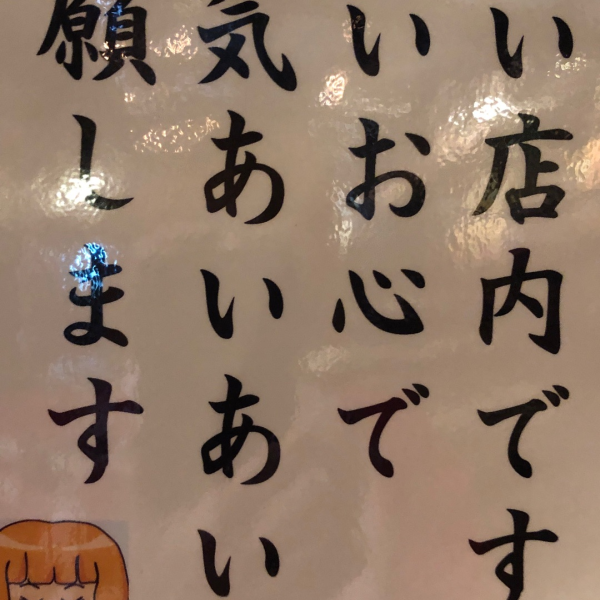 い店内です
いお心で
気あいあい
願します